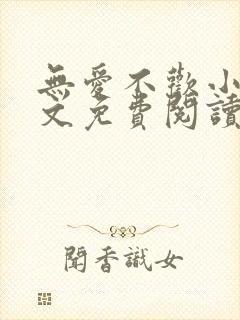 無愛不歡小
文免費閱讀
聞香識女